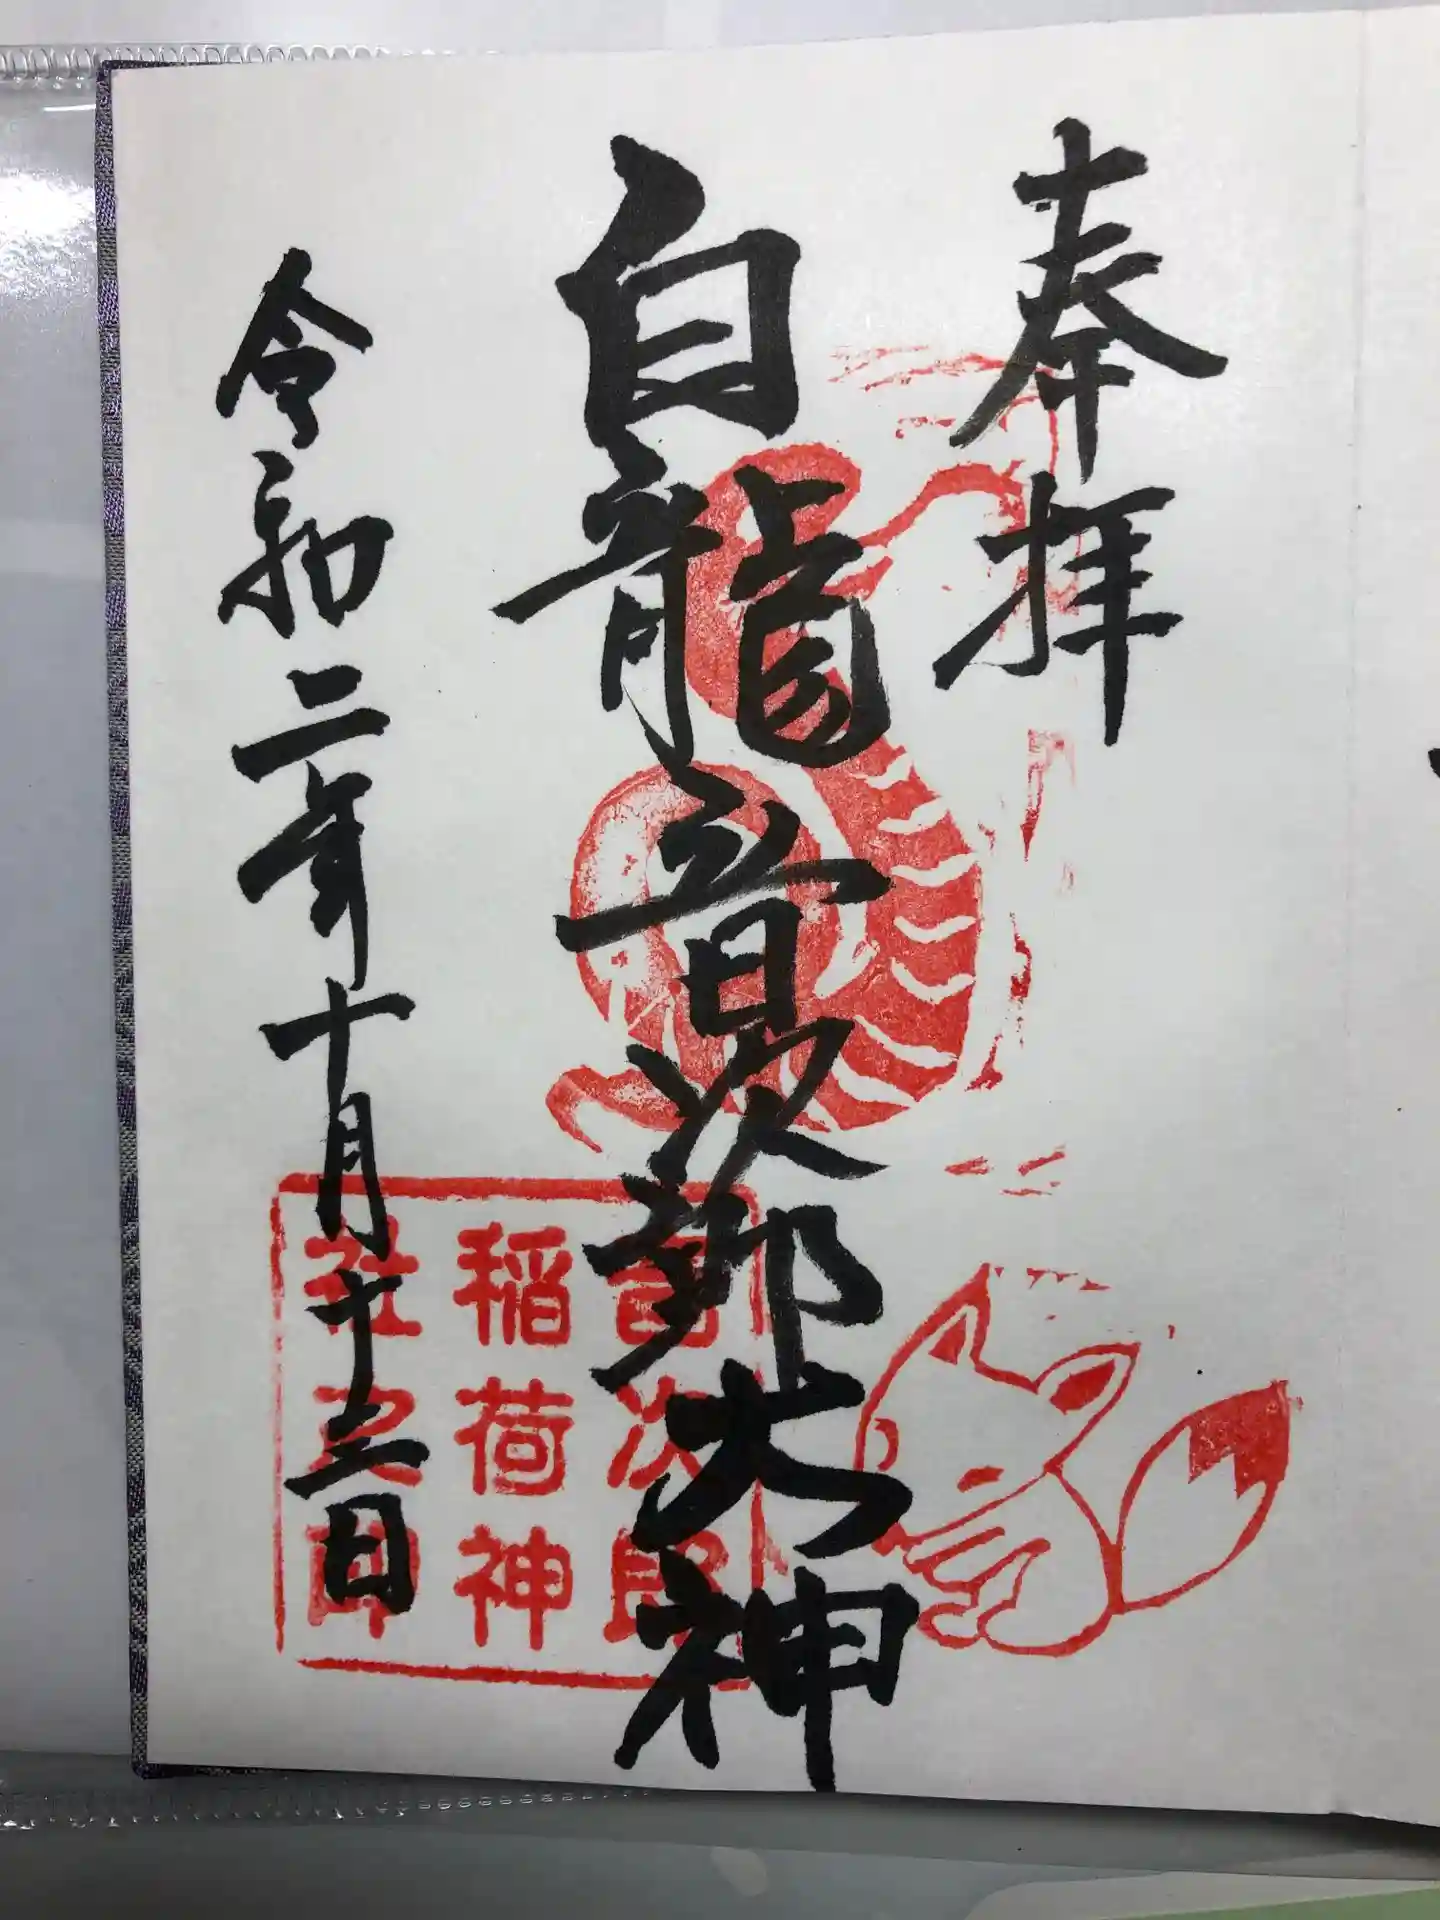 奉拝
白龍音次郎大神
令和二年十月十三日
音次郎
稲荷神
社之印